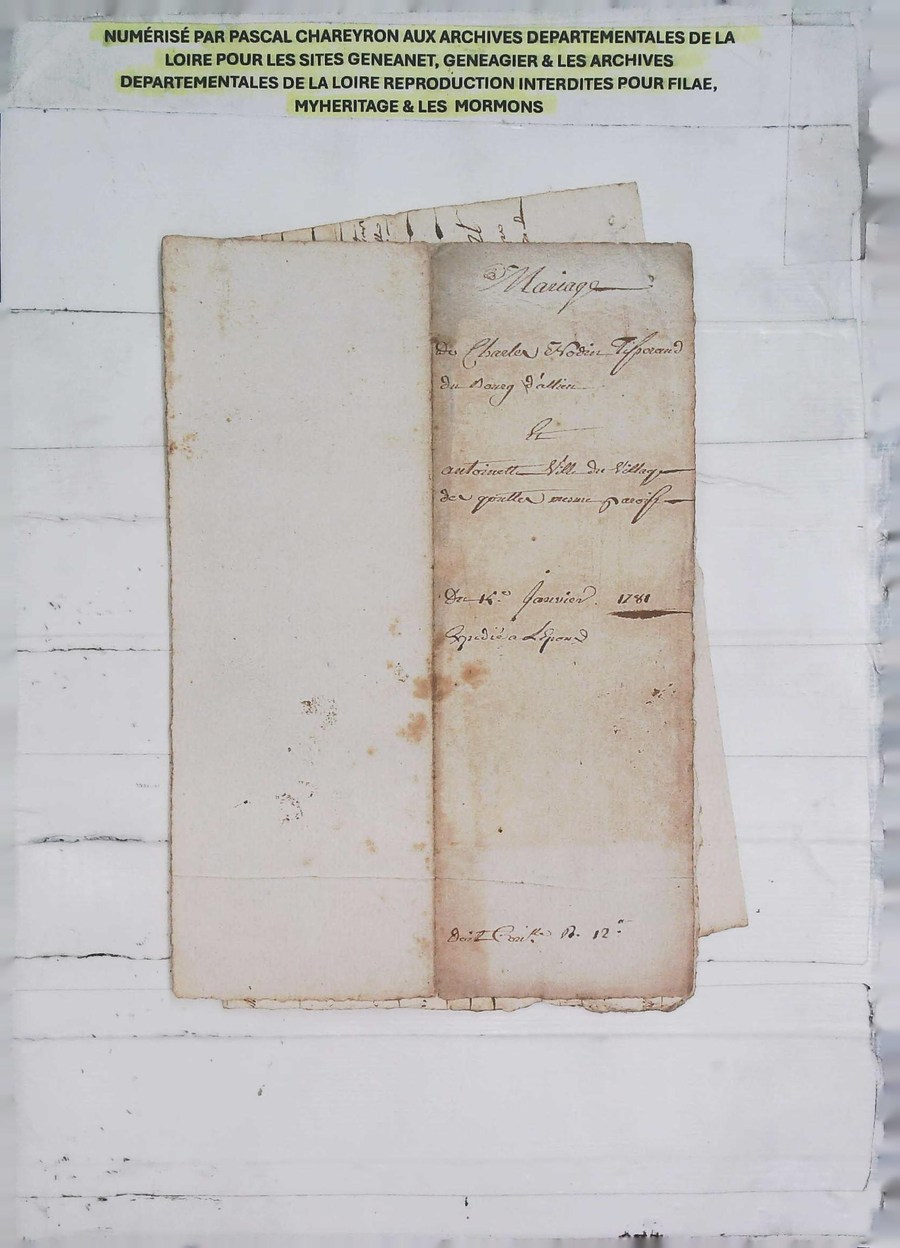 NUMÉRISÉ PAR PASCAL CHAREYRON AUX ARCHIVES DEPARTEMENTALES DE LA
LOIRE POUR LES SITES GENEANET, GENEAGIER & LES ARCHIVES
DEPARTEMENTALES DE LA LOIRE REPRODUCTION INTERDITES POUR FILAE,
MYHERITAGE & LES MORMONS
Mariage
de Charles Nodin Tisserand
du Bourg d'allieu
Et
antoinette Ville du Village
des gouttes meme paroisse
Du Janvier 1781
Expedié a L'Epoux
Doit 12